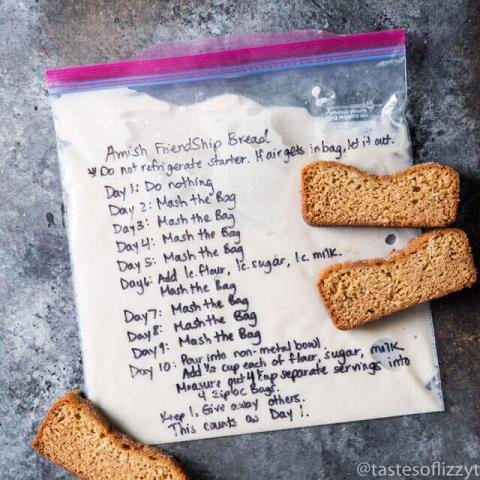 Amish Friendship Bread
* Do not refrigerate starter. If air gets in bag, let it out.
Day 1: Do nothing
Day 2: Mash the Bag
Day 3: Mash the Bag
Day 4: Mash the Bag
Day 5: Mash the Bag
Day 6: Add 1c. flour, 1c. sugar, 1 c. milk.
Mash the Bag
Day 7: Mash the Bag
Day 8: Mash the Bag
Day 9: Mash the Bag
Day 10: Pour into non-metal bowl.
Add 1/2 cup each of flour, sugar, milk
Measure out 4 1 cup separate servings into
4 Ziploc Bags.
Keep 1, Give away others.
This counts as Day 1.
@tastesoflizzyt